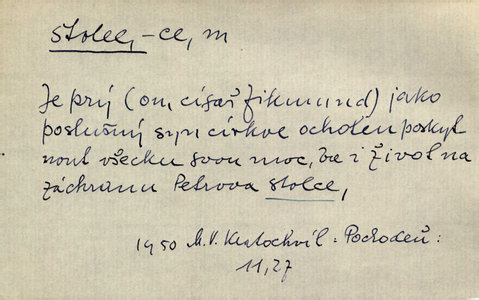 stolec, -ce, m
Je prý (on, císař Zikmund) jako
poslušný syn církve ochoten poskyt
nout všecku svou moc, ba i život na
záchranu Petrova stolce,
1950 M.V. Kratochvíl: Pochodeň:
11,27